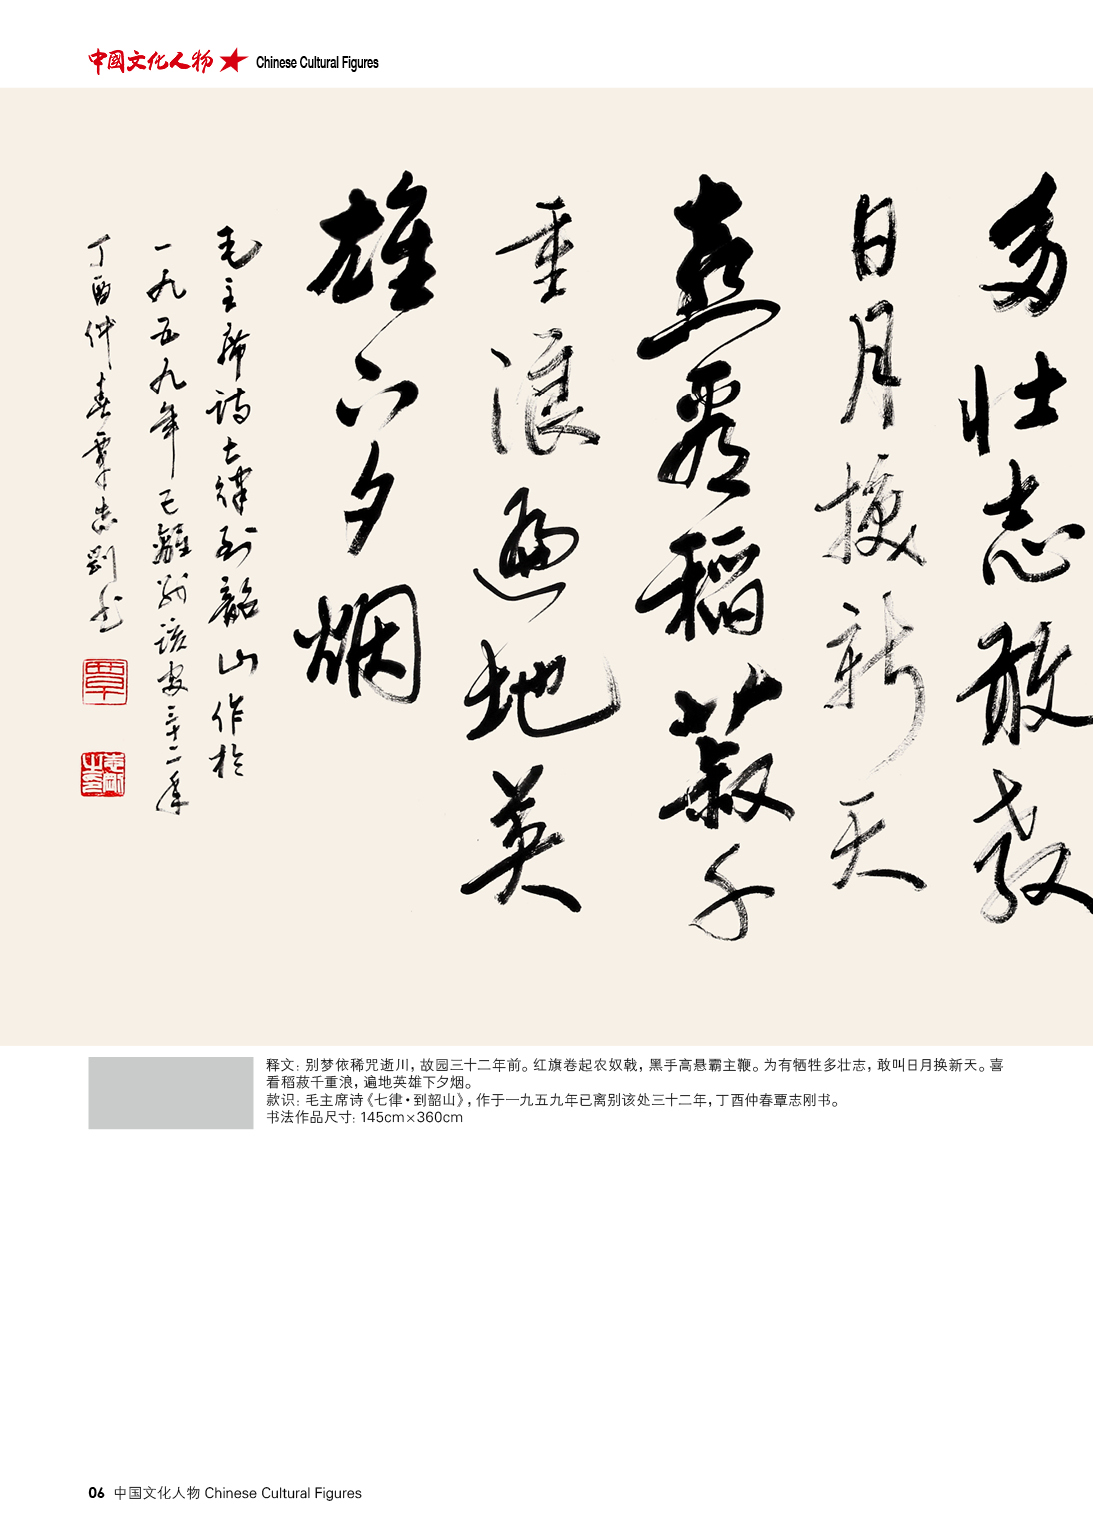 中國文化人物★ Chinese Cultural Figures
多壮志敢教
日月換新天
喜看稻菽千
重浪遍地英
雄下夕烟
毛主席诗七律到韶山作於
一九五九年已離别该处三十二年
丁酉仲春覃志剛书
覃
释文：别梦依稀咒逝川，故园三十二年前。红旗卷起农奴戟，黑手高悬霸主鞭。为有牺牲多壮志，敢叫日月换新天。喜
看稻菽千重浪，遍地英雄下夕烟。
款识：毛主席诗《七律·到韶山》，作于一九五九年已离别该处三十二年，丁酉仲春覃志刚书。
书法作品尺寸：145cm×360cm
06 中国文化人物 Chinese Cultural Figures